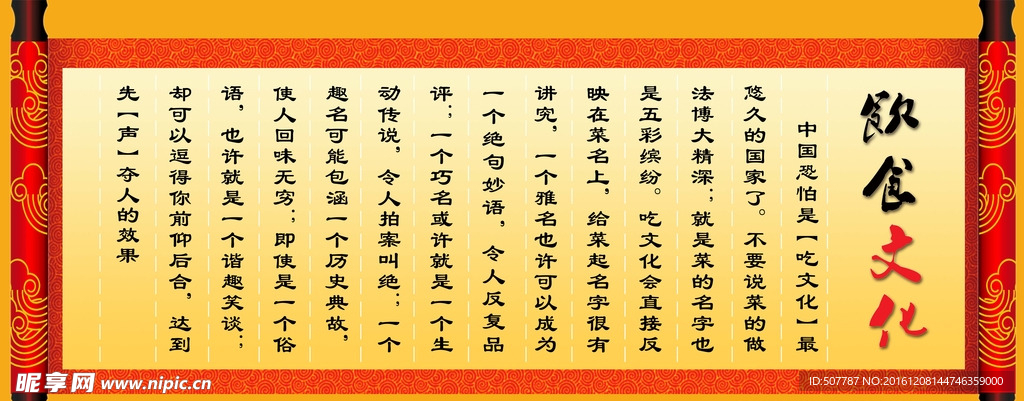 饮食文化
中国恐怕是【吃文化】最
悠久的国家了。不要说菜的做
法博大精深；就是菜的名字也
是五彩缤纷。吃文化会直接反
映在菜名上，给菜起名字很有
讲究，一个雅名也许可以成为
一个绝句妙语，令人反复品
评；一个巧名或许就是一个生
动传说，令人拍案叫绝；一个
趣名可能包涵一个历史典故，
使人回味无穷；即使是一个俗
语，也许就是一个谐趣笑谈；
却可以逗得你前仰后合，达到
先【声】夺人的效果
昵享网 www.nipic.cn
ID:507787 NO:20161208144746359000